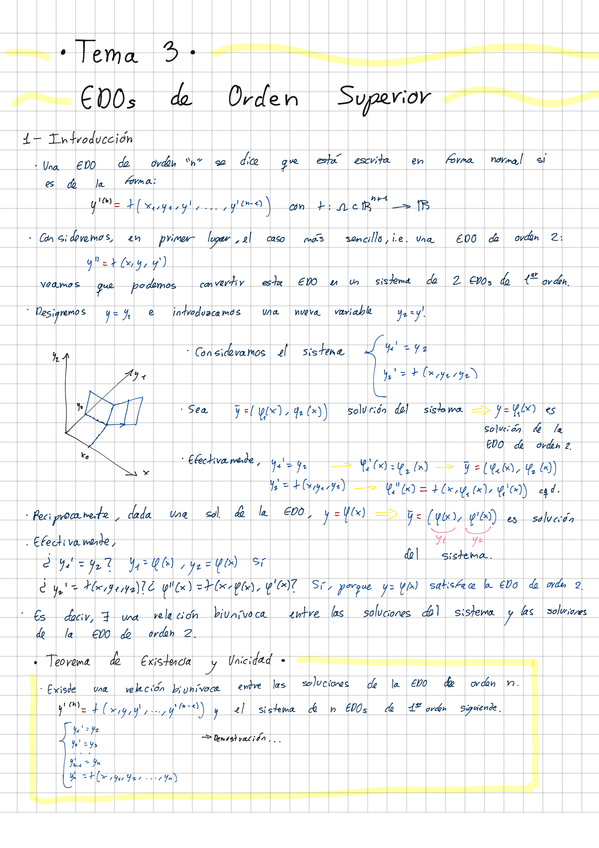 · Tema 3 ·
EDOs de Orden Superior
1- Introducción
· Una EDO de orden "n" se dice que está escrita en forma normal si
es de la forma:
y'⁽ⁿ⁾ = f(x, y, y', ..., y'⁽ⁿ⁻¹⁾) con f: Ω ⊂ ℝⁿ⁺¹ → ℝ
· Consideremos, en primer lugar, el caso más sencillo, i.e. una EDO de orden 2:
y'' = f(x, y, y')
veamos que podemos convertir esta EDO en un sistema de 2 EDOs de 1er orden.
· Designemos y = y₁ e introduzcamos una nueva variable y₂ = y'.
y₂
y₁
y₀
x₀
x
· Consideramos el sistema { y₁' = y₂
y₂' = f(x, y₁, y₂)
· Sea ȳ = (φ₁(x), φ₂(x)) solución del sistema ⇒ y = φ₁(x) es
solución de la
EDO de orden 2.
· Efectivamente, y₁' = y₂ → φ₁'(x) = φ₂(x) → ȳ = (φ₁(x), φ₂(x))
y₂' = f(x, y₁, y₂) → φ₁''(x) = f(x, φ₁(x), φ₁'(x)) cqd.
· Recíprocamente, dada una sol. de la EDO, y = φ(x) ⇒ ȳ = (φ(x), φ'(x)) es solución
y₁ y₂
del sistema.
· Efectivamente,
¿ y₁' = y₂? y₁ = φ(x), y₂ = φ'(x) Sí
¿ y₂' = f(x, y₁, y₂)? ¿ φ''(x) = f(x, φ(x), φ'(x)? Sí, porque y = φ(x) satisface la EDO de orden 2.
· Es decir, ∃ una relación biunívoca entre las soluciones del sistema y las soluciones
de la EDO de orden 2.
· Teorema de Existencia y Unicidad ·
· Existe una relación biunívoca entre las soluciones de la EDO de orden n.
y'⁽ⁿ⁾ = f(x, y, y', ..., y'⁽ⁿ⁻¹⁾) y el sistema de n EDOs de 1er orden siguiente.
{ y₁' = y₂
y₂' = y₃ → Demostración...
...
y'ₙ₋₁ = yₙ
yₙ' = f(x, y₁, y₂, ..., yₙ)